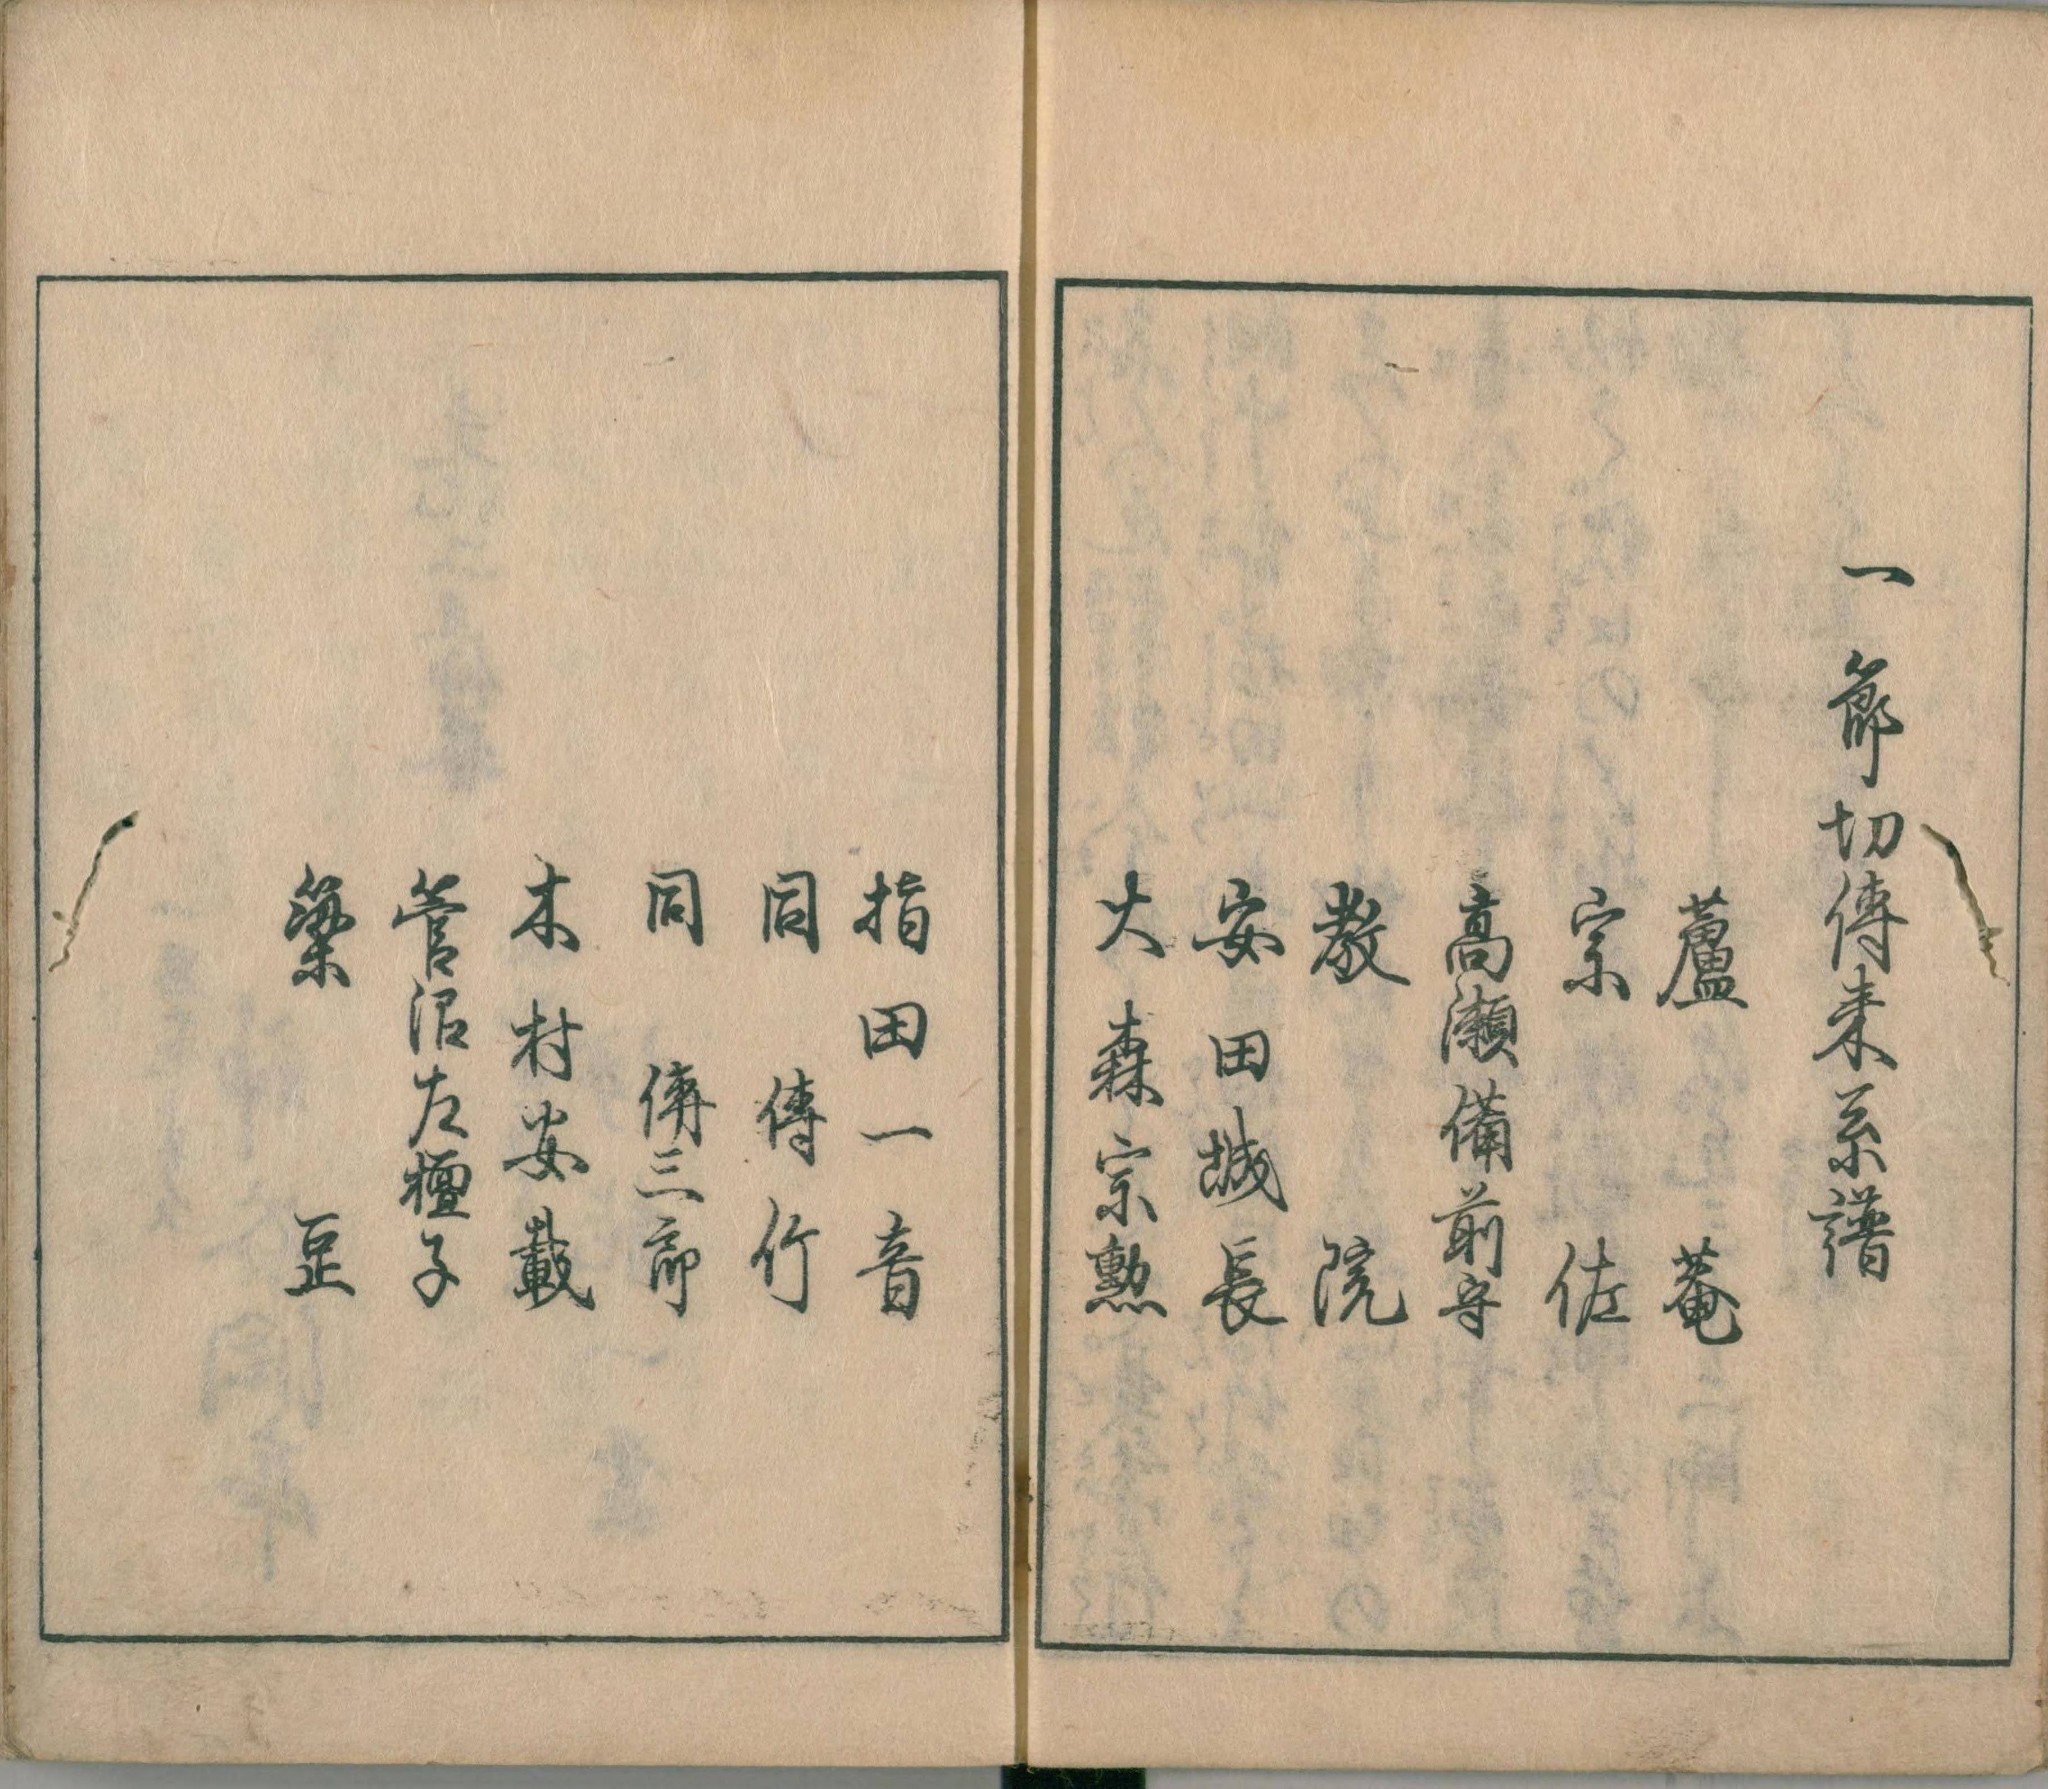 一節切傳来系譜
蘆菴
宗佐
高瀬備前守
教院
安田城長
大森宗勲
指田一音
同傳竹
同傳三郎
木村安載
管沼左檀子
簗豆